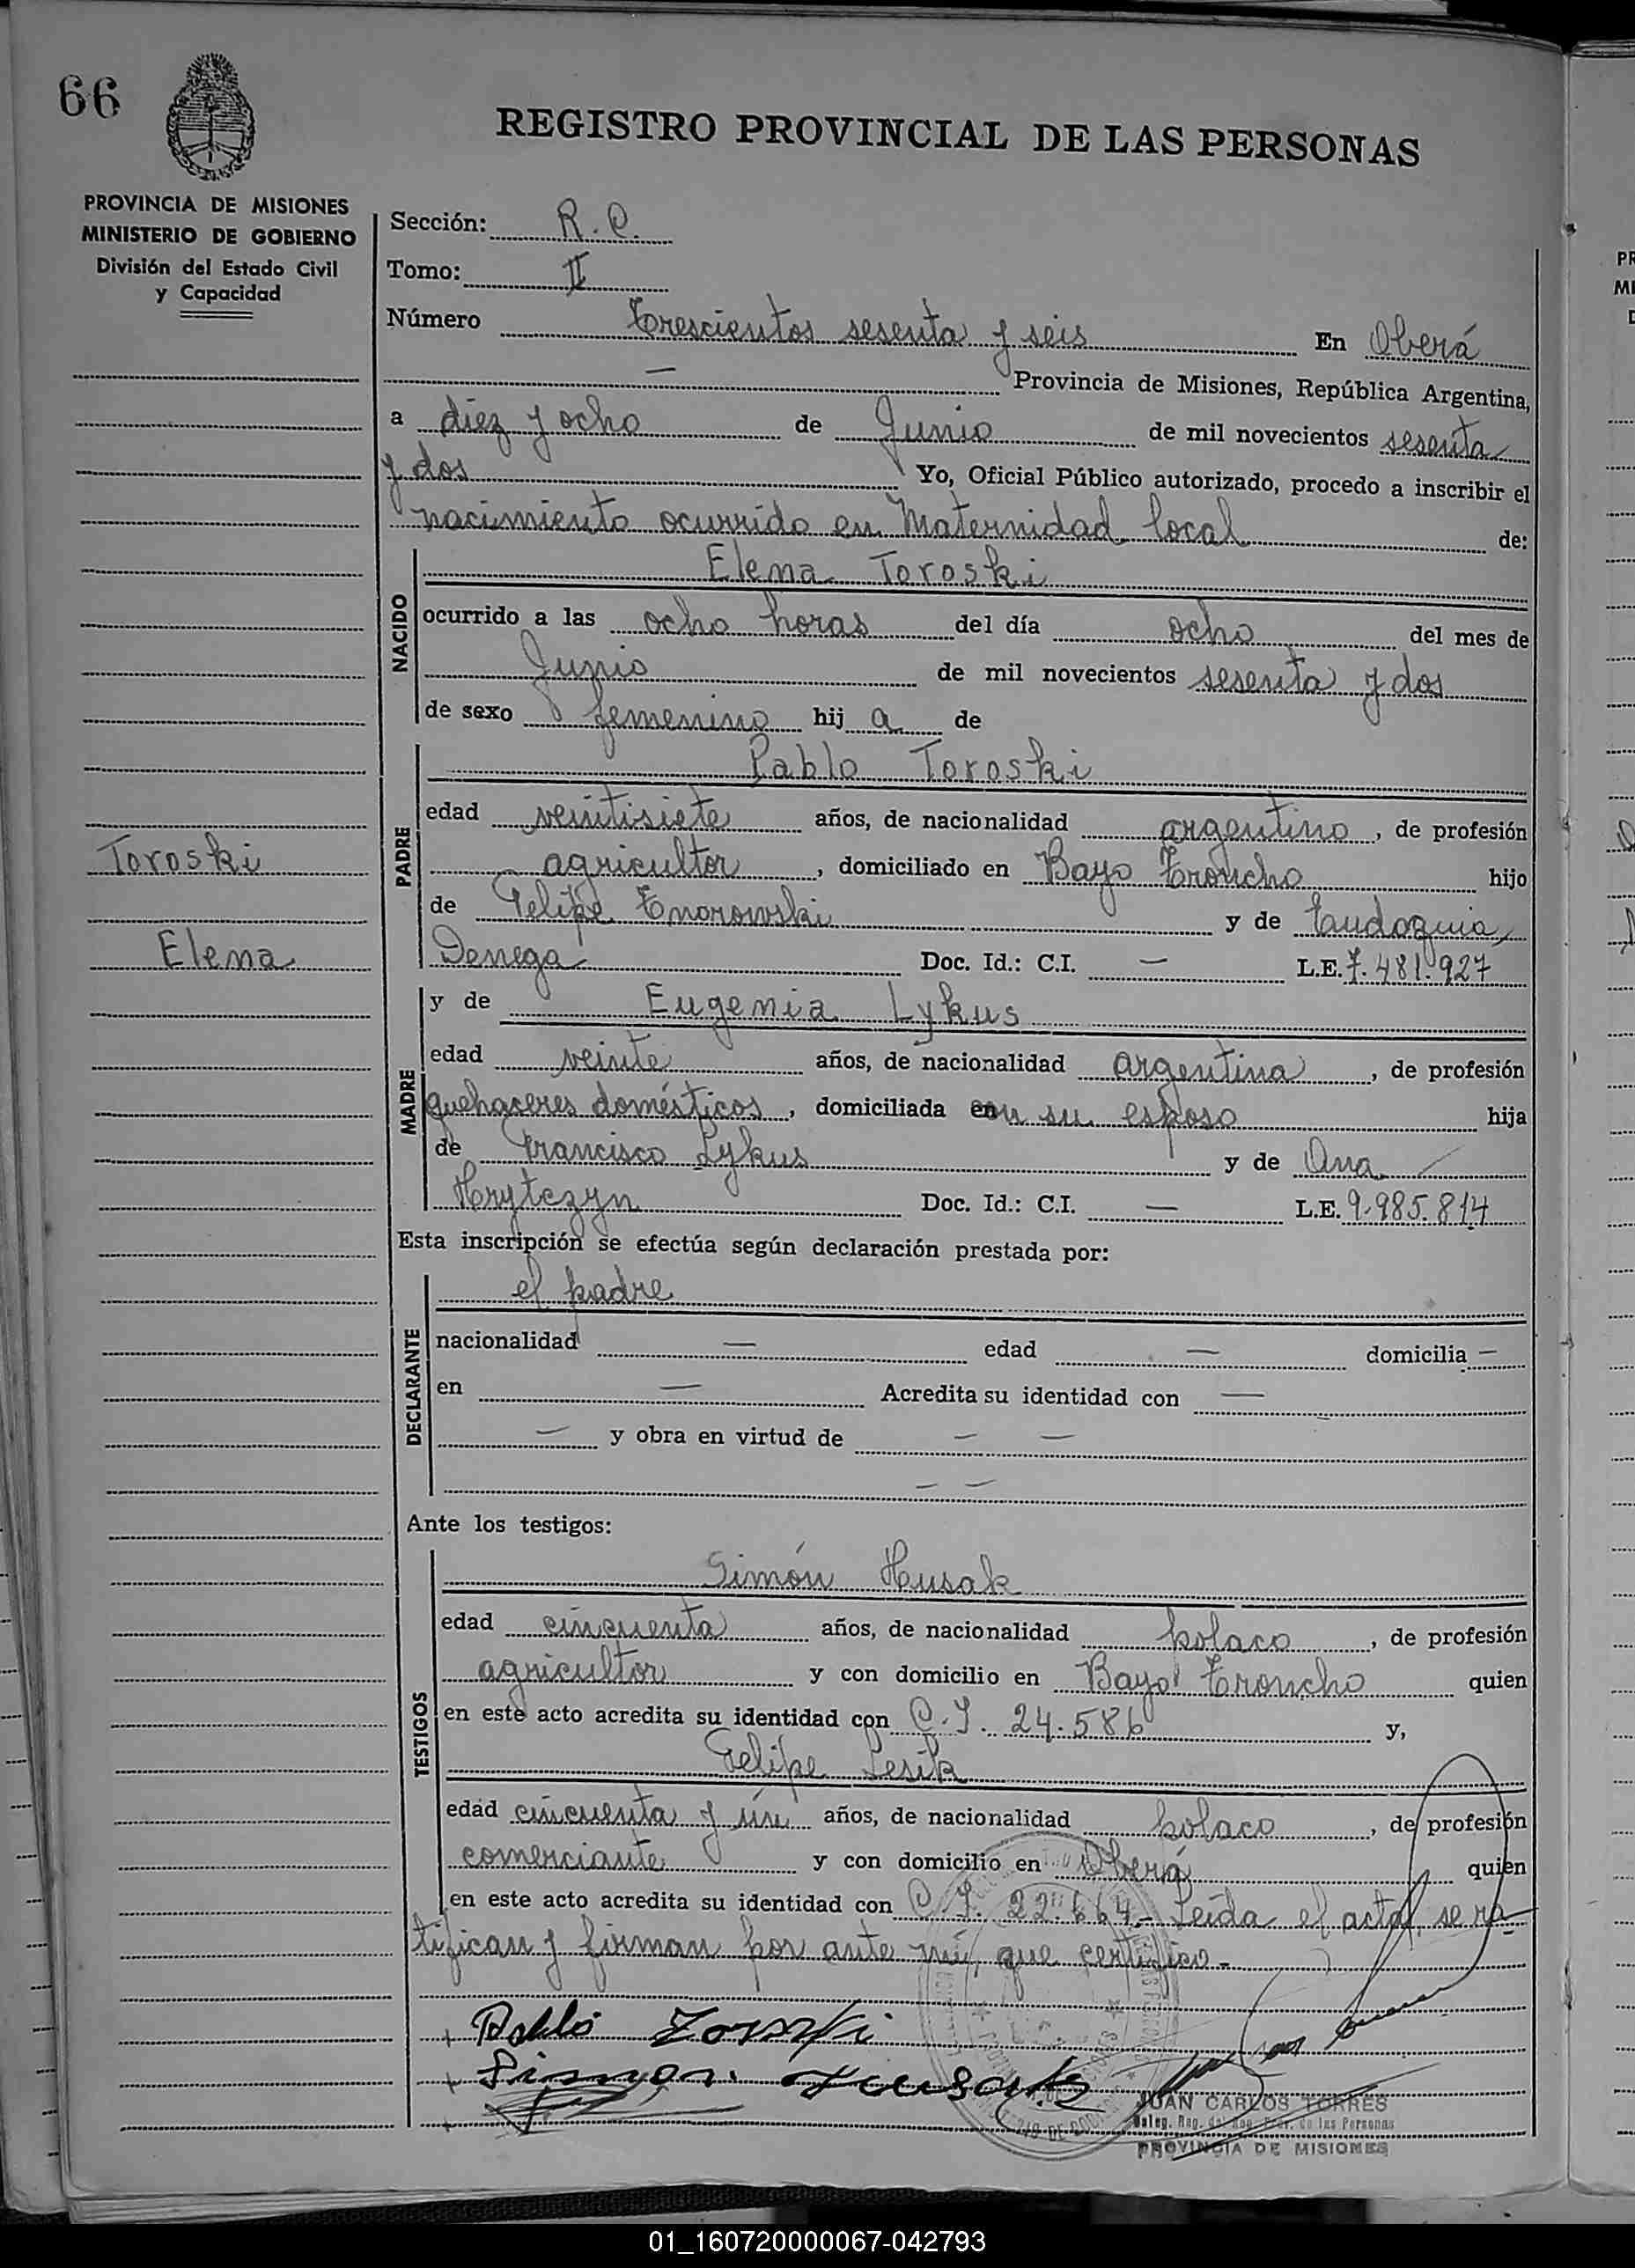 66
REGISTRO PROVINCIAL DE LAS PERSONAS
PROVINCIA DE MISIONES
MINISTERIO DE GOBIERNO
División del Estado Civil
y Capacidad
Sección: R. C.
Tomo: II
Número Trescientos sesenta y seis En Oberá
— Provincia de Misiones, República Argentina,
a diez y ocho de Junio de mil novecientos sesenta
y dos Yo, Oficial Público autorizado, procedo a inscribir el
nacimiento ocurrido en Maternidad local de:
NACIDO
Elena Toroski
ocurrido a las ocho horas del día ocho del mes de
Junio de mil novecientos sesenta y dos
de sexo femenino hij a de
PADRE
Pablo Toroski
edad veintisiete años, de nacionalidad argentino, de profesión
agricultor, domiciliado en Bayo Troncho hijo
de Felipe Tnorowski y de Eudoquia
Denega Doc. Id.: C.I. — L.E. 7.481.927
Toroski
Elena
MADRE
y de Eugenia Lykus
edad veinte años, de nacionalidad argentina, de profesión
quehaceres domésticos, domiciliada con su esposo hija
de Francisco Lykus y de Ana
Hrytczyn Doc. Id.: C.I. — L.E. 9.985.814
Esta inscripción se efectúa según declaración prestada por:
DECLARANTE
el padre
nacionalidad — edad — domicilia —
en — Acredita su identidad con —
— y obra en virtud de — —
— —
Ante los testigos:
TESTIGOS
Simón Husak
edad cincuenta años, de nacionalidad polaco, de profesión
agricultor y con domicilio en Bayo Troncho quien
en este acto acredita su identidad con C.I. 24.586 y,
Felipe Lesik
edad cincuenta y ún años, de nacionalidad polaco, de profesión
comerciante y con domicilio en Oberá quien
en este acto acredita su identidad con C.I. 22.664.- Leída el acta, se ra
tifican y firman por ante mí, que certifico.-
Pablo Toroski
Simon Husak
JUAN CARLOS TORRES
Deleg. Reg. de las Personas
PROVINCIA DE MISIONES
01_160720000067-042793